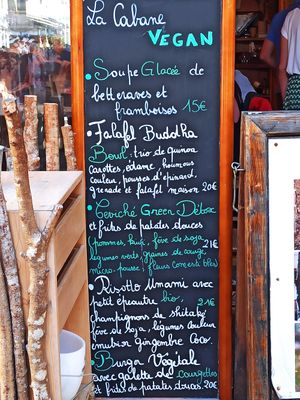 La Cabane
VEGAN
Soupe Glacée de
betteraves et
framboises 15€
Falafel Buddha
Bowl: trio de quinoa
carottes, édame, houmous
couleur, pousses d'épinard,
grenade et falafel maison 20€
Ceviché Green Détox
et frites de patates douces
(pommes, kiwi, fève de soja, 21€
légumes verts, graines de courge,
micro-pousse, fleurs comestibles)
Risotto Umami avec
petit épeautre bio, 21€
champignons de shitaké
fève de soja, légumes couleur
émulsion gingembre Coco.
Burger Végétale
avec galette de courgettes
et frites de patates douces. 20€